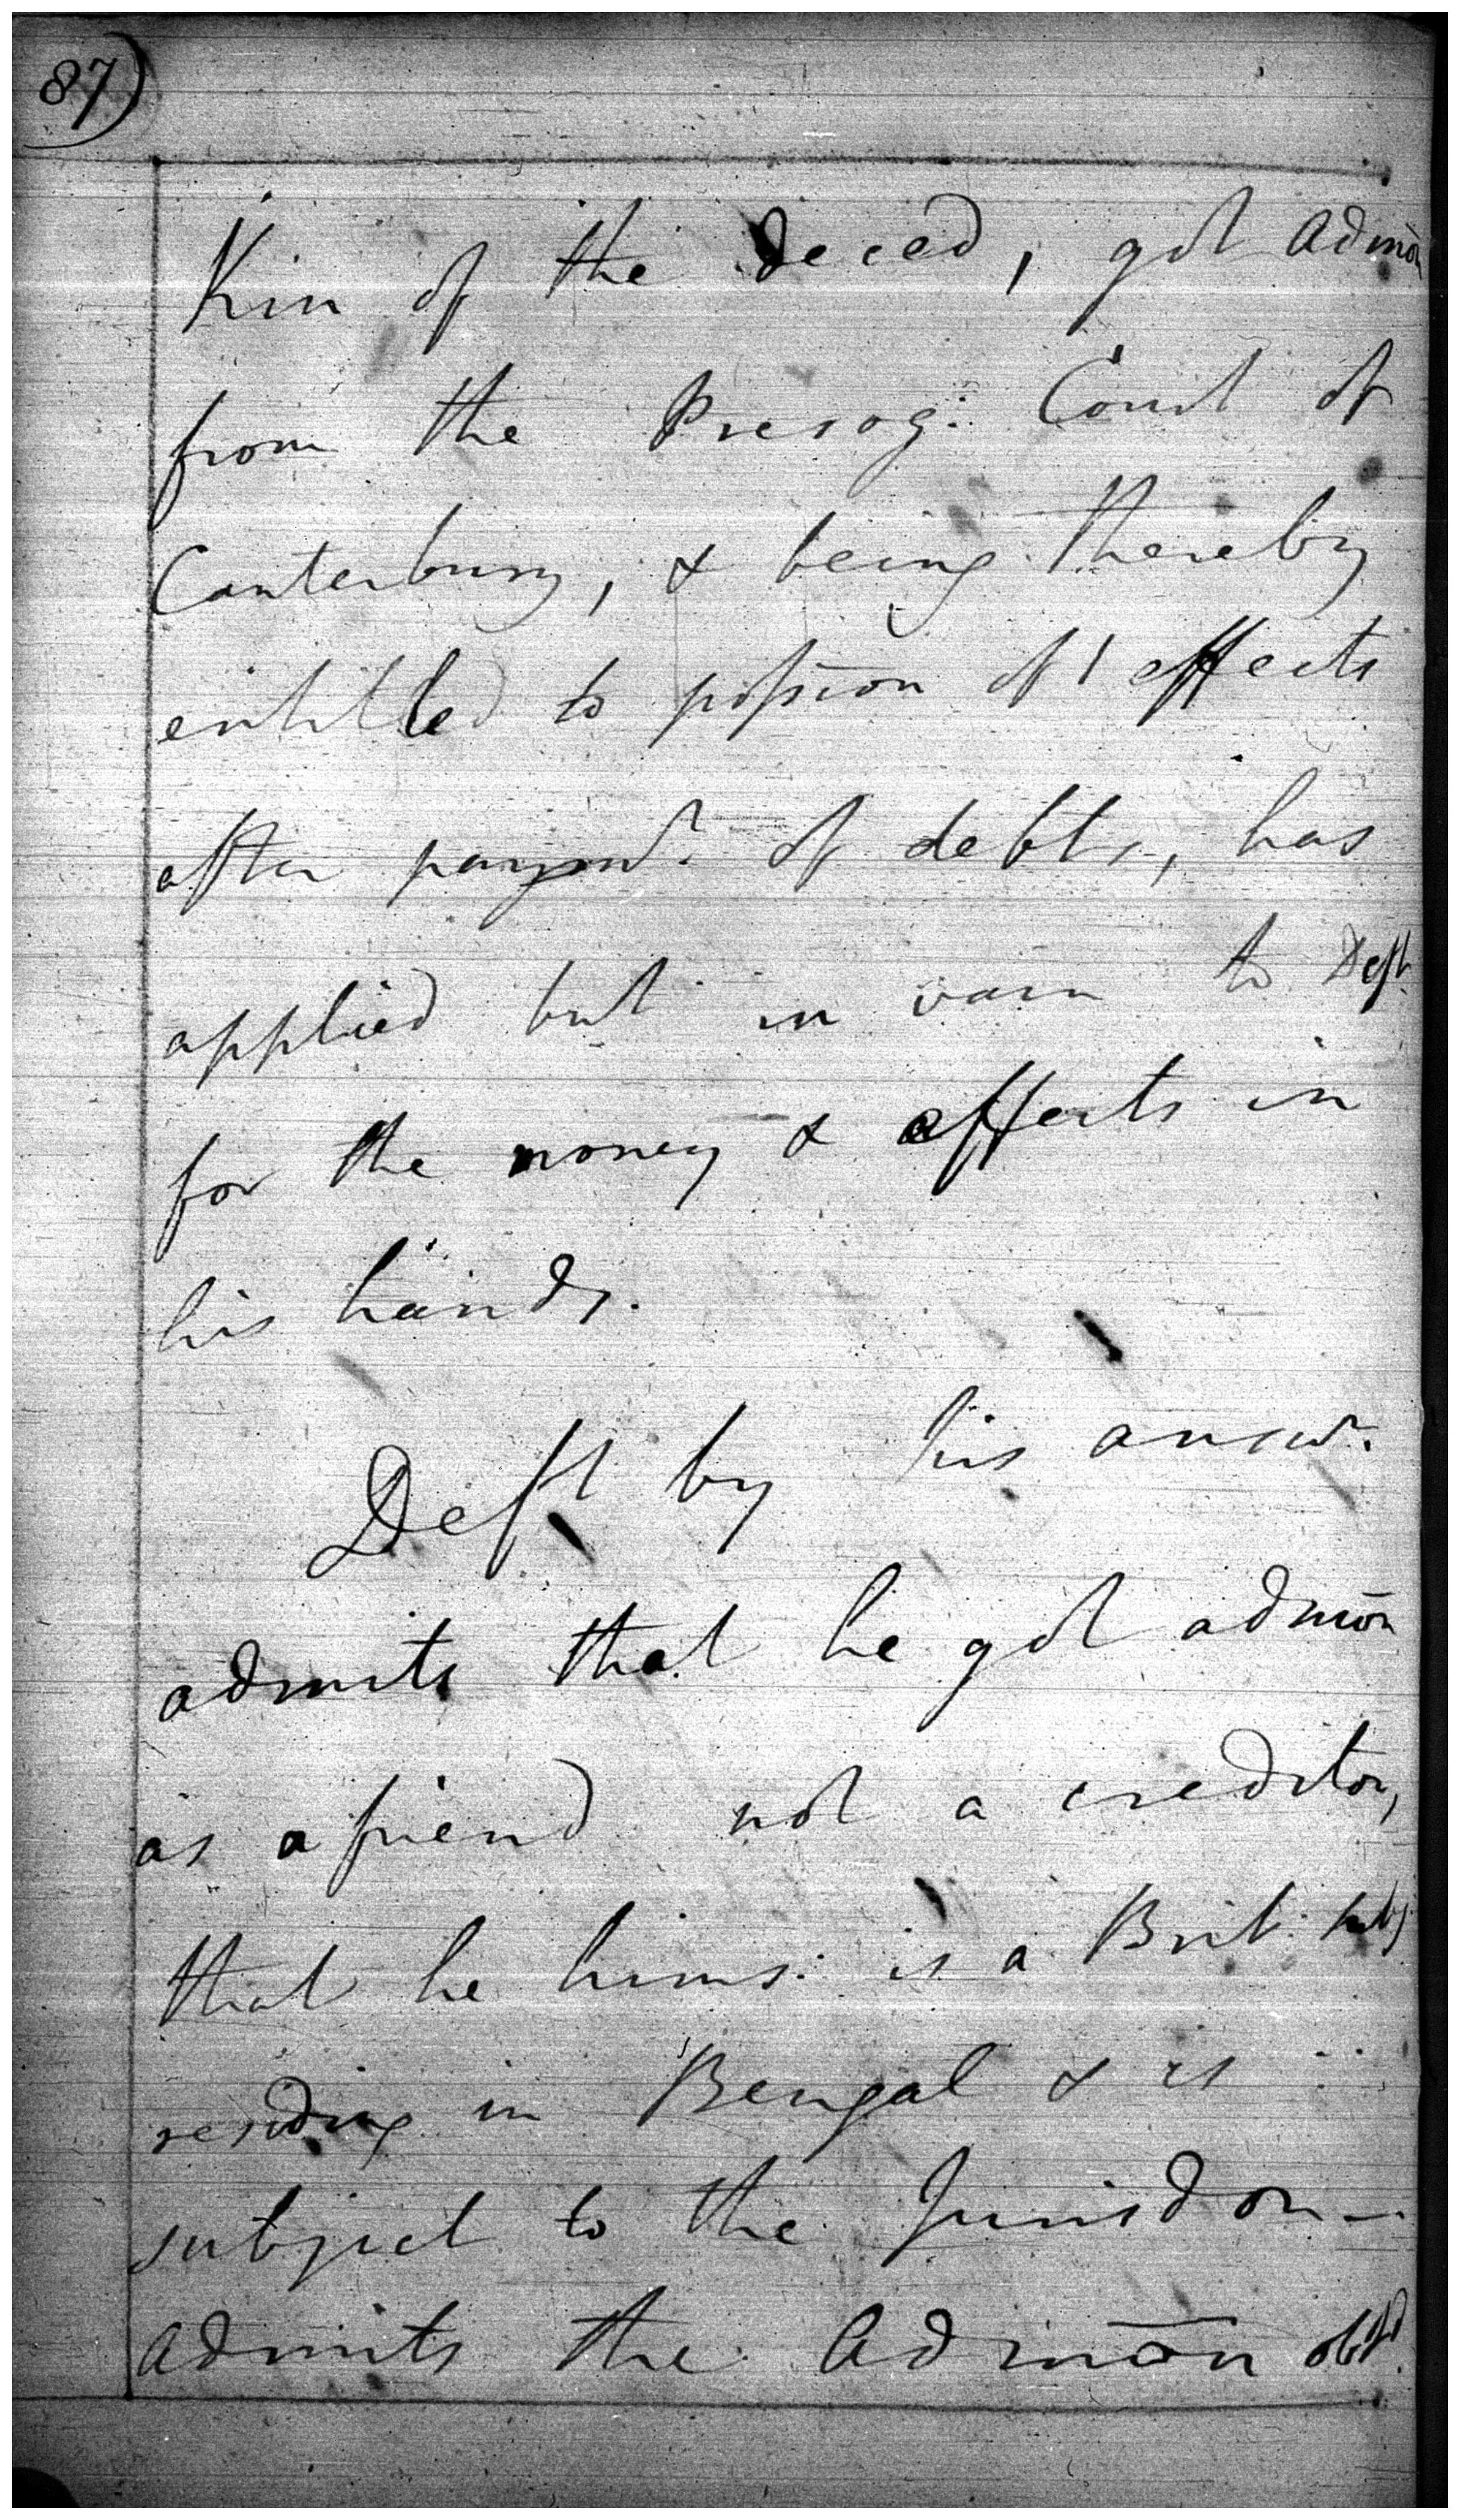 87)
Kin of the deced, got Admōn
from the Prerog: Court of
Canterbury, & being thereby
entitled to possīon of effects
after paymt. of debts, has
applied but in vain to Deft.
for the money & effects in
his hands.
Deft by his answr.
admits that he got admōn
as a friend not a creditor,
that he hims: is a Brit: subj:
residing in Bengal & is
subject to the Jurisdon —
Admits the Admōn obtd.